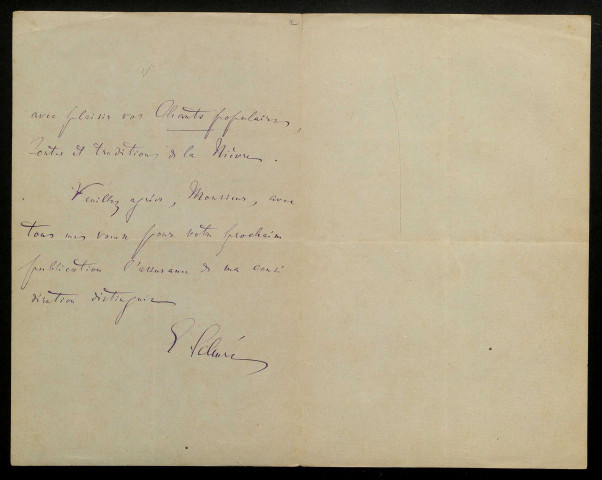 avec plaisir vos Chants populaires,
Contes et traditions de la Nièvre.
Veuillez agréer, Monsieur, avec
tous mes vœux pour votre prochaine
publication l'assurance de ma consi
dération distinguée
E. Schuré